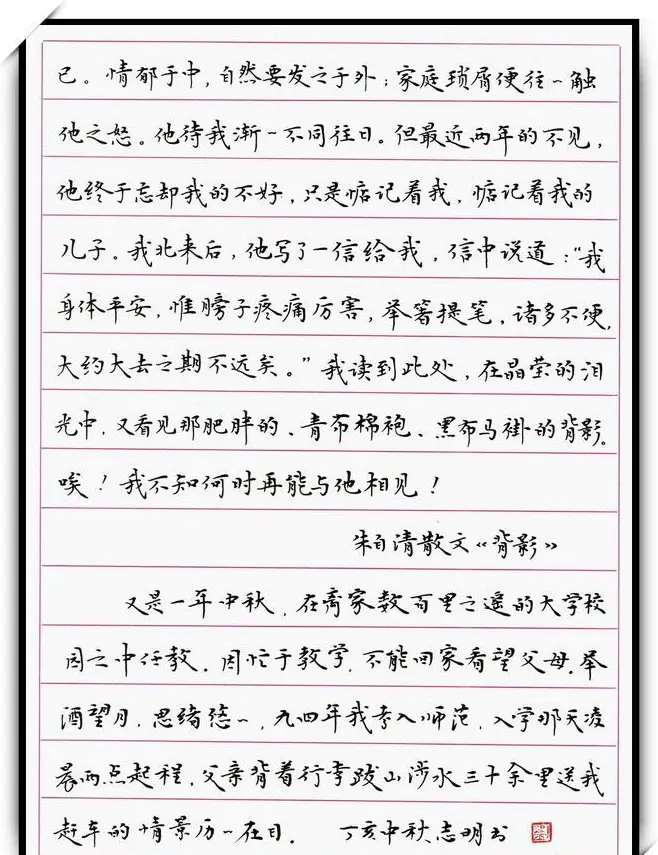 已。情郁于中，自然要发之于外；家庭琐屑便往~触
他之怒。他待我渐~不同往日。但最近两年的不见，
他终于忘却我的不好，只是惦记着我，惦记着我的
儿子。我北来后，他写了一信给我，信中说道：“我
身体平安，惟膀子疼痛厉害，举箸提笔，诸多不便，
大约大去之期不远矣。”我读到此处，在晶莹的泪
光中，又看见那肥胖的、青布棉袍、黑布马褂的背影。
唉！我不知何时再能与他相见！
朱自清散文《背影》
又是一年中秋，在离家数百里之遥的大学校
园之中任教，因忙于教学，不能回家看望父母，举
酒望月，思绪悠~，九四年我考入师范，入学那天凌
晨两点起程，父亲背着行李跋山涉水三十余里送我
赶车的情景历~在目。 丁亥中秋志明书